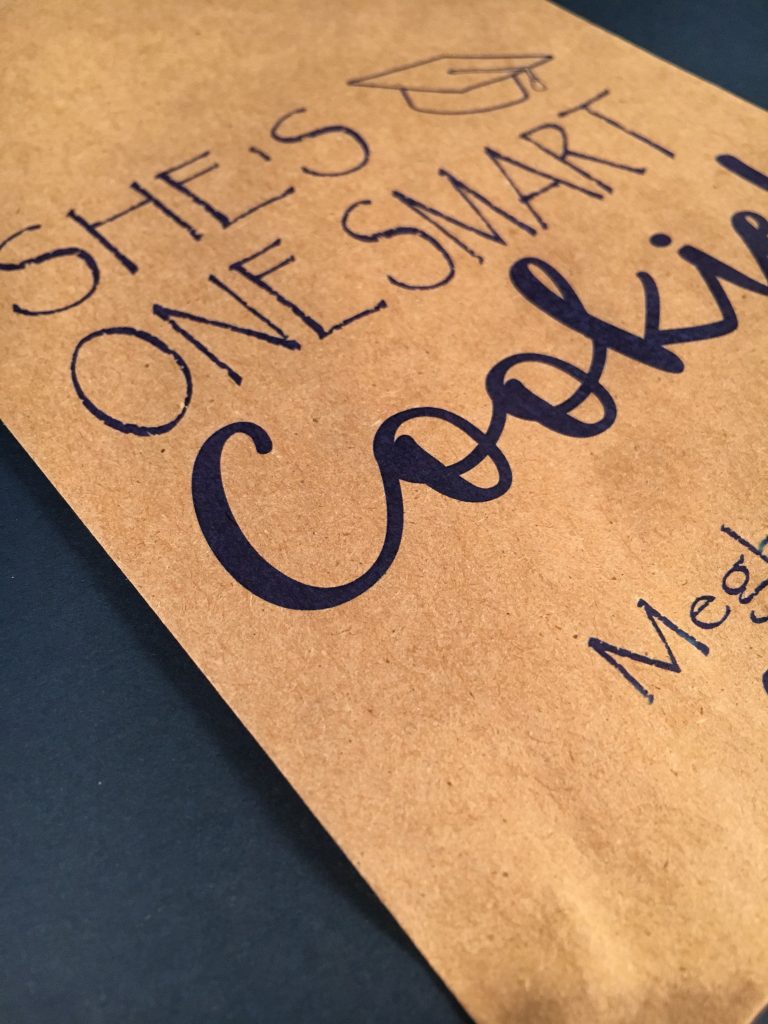 SHE'S
ONE SMART
Cookie
Megh